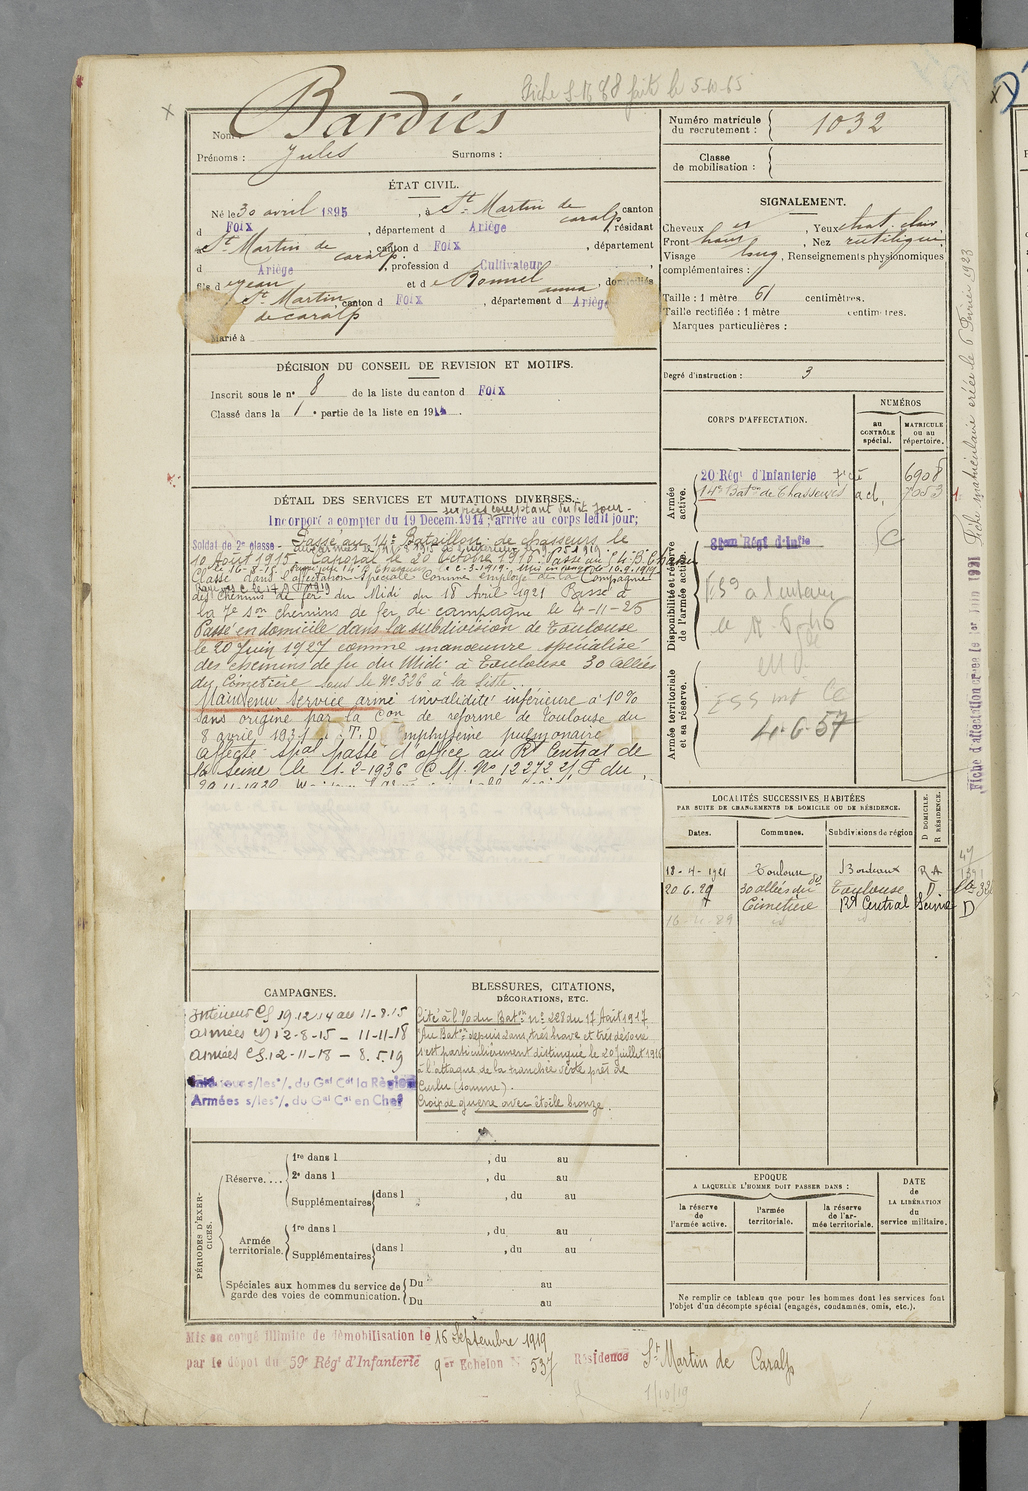 Fiche S. 1688 fait le 5-10-65
Nom : Bardies
Prénoms : Jules Surnoms :
ÉTAT CIVIL.
Né le 30 avril 1895, à St Martin de caralp canton
d Foix, département d Ariège, résidant
à St Martin de caralp, canton de Foix, département
d Ariège, profession d Cultivateur
fils d e jean et d e Bonnel anna, domiciliés
St Martin de caralp, canton d Foix, département d Ariège
Marié à
DÉCISION DU CONSEIL DE REVISION ET MOTIFS.
Inscrit sous le n° 8 de la liste du canton d Foix
Classé dans la 1e partie de la liste en 1914.
DÉTAIL DES SERVICES ET MUTATIONS DIVERSES.
services comptant du dit jour.
Incorporé a compter du 19 Decem. 1914; arrivé au corps ledit jour;
Soldat de 2e classe - Passé au 14e Bataillon de chasseurs le
10 Août 1915. Caporal le 20 Octobre 1916. Passé au
Classé dans l'affectation spéciale Comme employé de la Compagnie
des chemins de fer du Midi du 18 Avril 1921 Passé à
la 7e Son chemins de fer de campagne le 4-11-25
Passé en domicile dans la subdivision de Toulouse
le 20 Juin 1927 comme manoeuvre spécialisé
des chemins de fer du Midi à Toulouse 30 allées
du Cimetière sous le N° 326 à la liste.
Maintenu service armé invalidité inférieure à 10%
sans origine par la Con de reforme de Toulouse du
8 avril 193 : T.D Emphysème pulmonaire
Affecté spal passé d'office au Rt Central de
la Seine le 1-2-1936 @ M. N° 12272 2/S du
CAMPAGNES.
Intérieur CS 19.12.14 au 11-8.15
armées CD 12-8-15 - 11-11-18
armées CS. 12-11-18 - 8.5.19
Intérieurs s/les °/. du Gal Cdt la Région
Armées s/les °/. du Gal Cdt en Chef
BLESSURES, CITATIONS,
DÉCORATIONS, ETC.
Cité à l'o/ du Baton n° 228 du 17 Août 1917.
"Au Baton depuis 2 ans, très brave et très dévoué
s'est particulièrement distingué le 20 juillet 1916
à l'attaque de la tranchée verte près de
Curlu (Somme).
Croix de guerre avec étoile bronze.
PÉRIODES D'EXERCICES.
Réserve.... 1re dans l , du au
2e dans l , du au
Supplémentaires dans l , du au
Armée territoriale. 1re dans l , du au
Supplémentaires dans l , du au
Spéciales aux hommes du service de garde des voies de communication. Du au
Du au
Mis en congé illimité de démobilisation le 16 Septembre 1919
par le dépôt du 59e Régt d'Infanterie 9er Echelon N° 537 Résidence St Martin de Caralp
1/10/19
Numéro matricule du recrutement : 1032
Classe de mobilisation :
SIGNALEMENT.
Cheveux , Yeux chat. clair
Front haut, Nez rectiligne
Visage long, Renseignements physionomiques
complémentaires :
Taille : 1 mètre 61 centimètres.
Taille rectifiée : 1 mètre centimètres.
Marques particulières :
Degré d'instruction : 3
CORPS D'AFFECTATION.
NUMÉROS
au CONTRÔLE spécial.
MATRICULE ou au répertoire.
Armée active.
20 Régt d'Infanterie 6908
14e Baton de Chasseurs 7053
Disponibilité et réserve de l'armée active.
81eme Régt d'Infie
Armée territoriale et sa réserve.
4.6.57
LOCALITÉS SUCCESSIVES HABITÉES
PAR SUITE DE CHANGEMENTS DE DOMICILE OU DE RÉSIDENCE.
Dates. Communes. Subdivisions de région D DOMICILE. R RÉSIDENCE.
18-4-1921 Toulouse Bordeaux R
20.6.27 30 allées du Cimetière Toulouse D
Rt Central Seine D
EPOQUE
A LAQUELLE L'HOMME DOIT PASSER DANS :
la réserve de l'armée active.
l'armée territoriale.
la réserve de l'armée territoriale.
DATE de LA LIBÉRATION du service militaire.
Ne remplir ce tableau que pour les hommes dont les services font
l'objet d'un décompte spécial (engagés, condamnés, omis, etc.).
Fiche matriculaire créée le 6 Février 1923
Fiche d'affectation créée le 1er Juin 1921